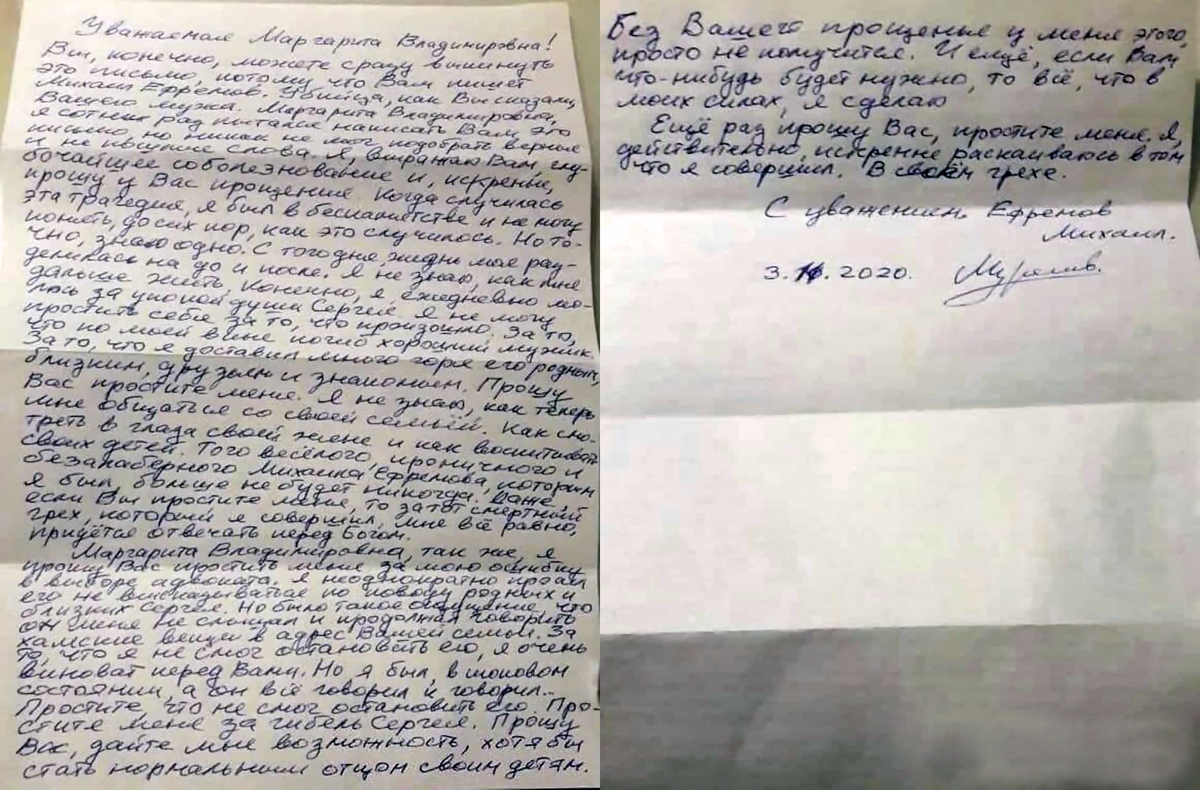 Уважаемая Маргарита Владимировна!
Вы, конечно, можете сразу выкинуть
это письмо, потому что Вам пишет
Михаил Ефремов. Убийца, как Вы сказали,
Вашего мужа. Маргарита Владимировна,
я сотни раз пытался написать Вам это
письмо, но никак не мог подобрать верные
и не пустые слова. Я, выражаю Вам, глу-
бочайшее соболезнование и, искренне,
прошу у Вас прощения. Когда случилась
эта трагедия, я был в беспамятстве и не могу
понять, до сих пор, как это случилось. Но то-
чно, знаю одно. С того дня жизнь моя раз-
делилась на до и после. Я не знаю, как мне
дальше жить. Конечно, я, ежедневно мо-
люсь за упокой души Сергея. Я не могу
простить себе за то, что произошло. За то,
что по моей вине погиб хороший мужик.
За то, что я доставил много горя его родным,
близким, друзьям и знакомым. Прошу
Вас простите меня. Я не знаю, как теперь
мне общаться со своей семьёй. Как смо-
треть в глаза своей жене и как воспитывать
своих детей. Того весёлого, ироничного и
безалаберного Михаила Ефремова, которым
я был, больше не будет никогда. Даже,
если Вы простите меня, то за тот смертный
грех, который я совершил, мне всё равно,
придётся отвечать перед Богом.
Маргарита Владимировна, так же, я
прошу Вас простить меня за мою ошибку
в выборе адвоката. Я неоднократно просил
его не высказываться по поводу родных и
близких Сергея. Но было такое ощущение, что
он меня не слышал и продолжал говорить
хамские вещи в адрес Вашей семьи. За
то, что я не смог остановить его, я очень
виноват перед Вами. Но я был, в шоковом
состоянии, а он всё говорил и говорил...
Простите, что не смог остановить его. Про-
стите меня за гибель Сергея. Прошу
Вас, дайте мне возможность, хотя бы
стать нормальным отцом своим детям.
Без Вашего прощенье у меня этого,
просто не получится. И ещё, если Вам,
что-нибудь будет нужно, то всё, что в
моих силах, я сделаю
Ещё раз прошу Вас, простите меня. Я,
действительно, искренне раскаиваюсь в том
что я совершил. В своём грехе.
С уважением, Ефремов
Михаил.
3. 2020.